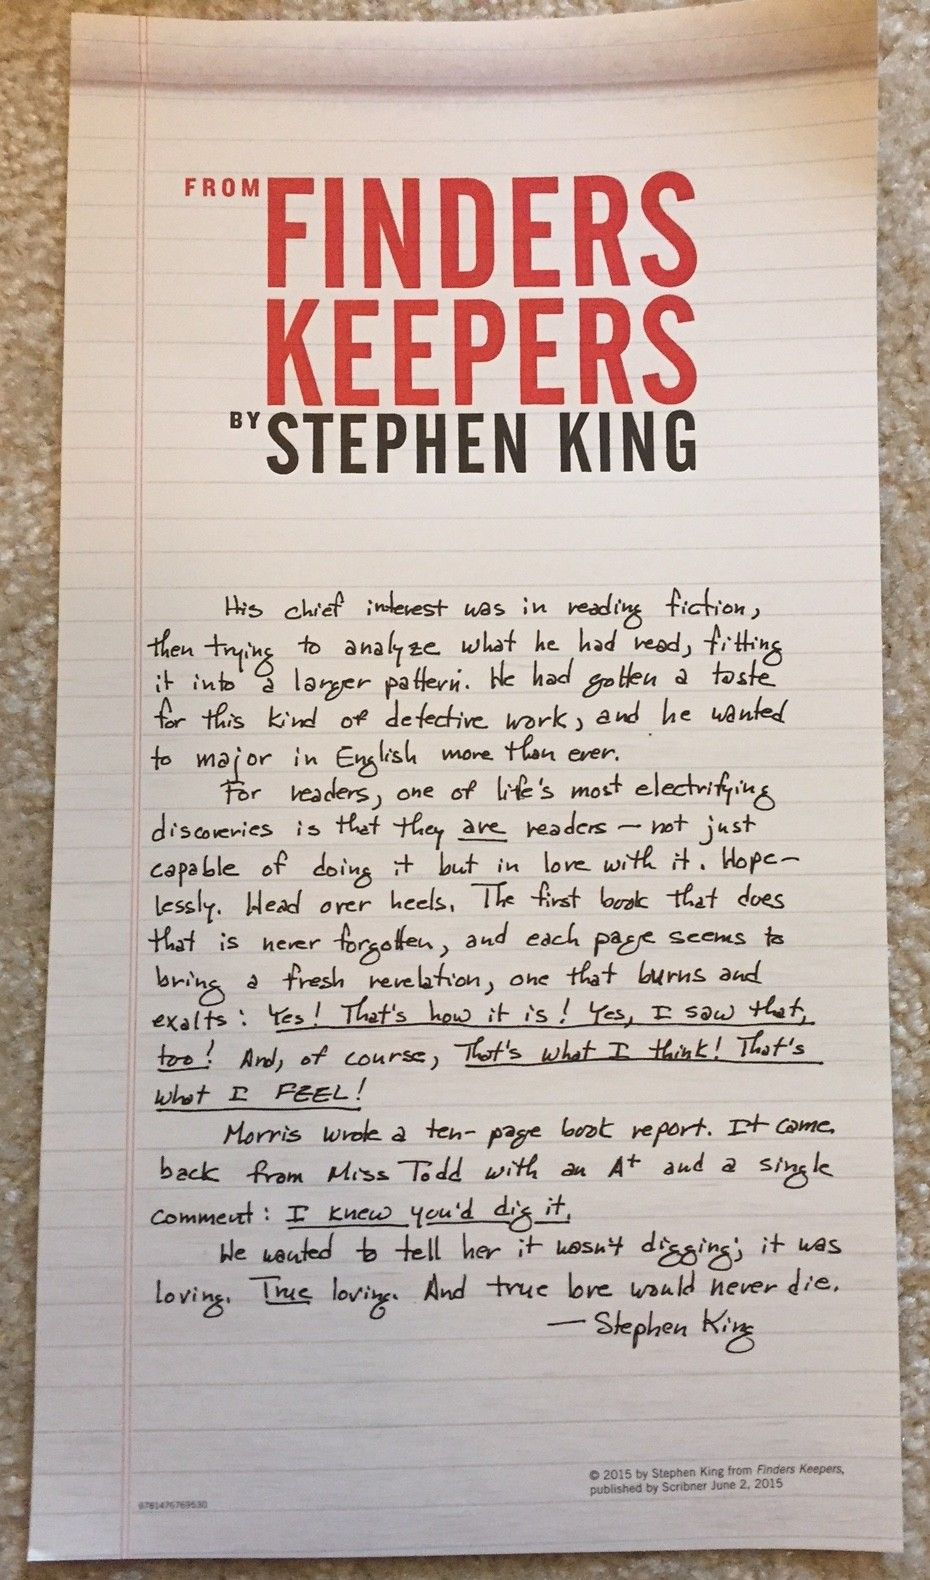 FROM FINDERS
KEEPERS
BY STEPHEN KING
His chief interest was in reading fiction,
then trying to analyze what he had read, fitting
it into a larger pattern. He had gotten a taste
for this kind of detective work, and he wanted
to major in English more than ever.
For readers, one of life's most electrifying
discoveries is that they are readers — not just
capable of doing it but in love with it. Hope-
lessly. Head over heels. The first book that does
that is never forgotten, and each page seems to
bring a fresh revelation, one that burns and
exalts: Yes! That's how it is! Yes, I saw that,
too! And, of course, That's what I think! That's
what I FEEL!
Morris wrote a ten-page book report. It came
back from Miss Todd with an A+ and a single
comment: I knew you'd dig it.
He wanted to tell her it wasn't digging; it was
loving. True loving. And true love would never die.
— Stephen King
© 2015 by Stephen King from Finders Keepers,
published by Scribner June 2, 2015
9781476769530